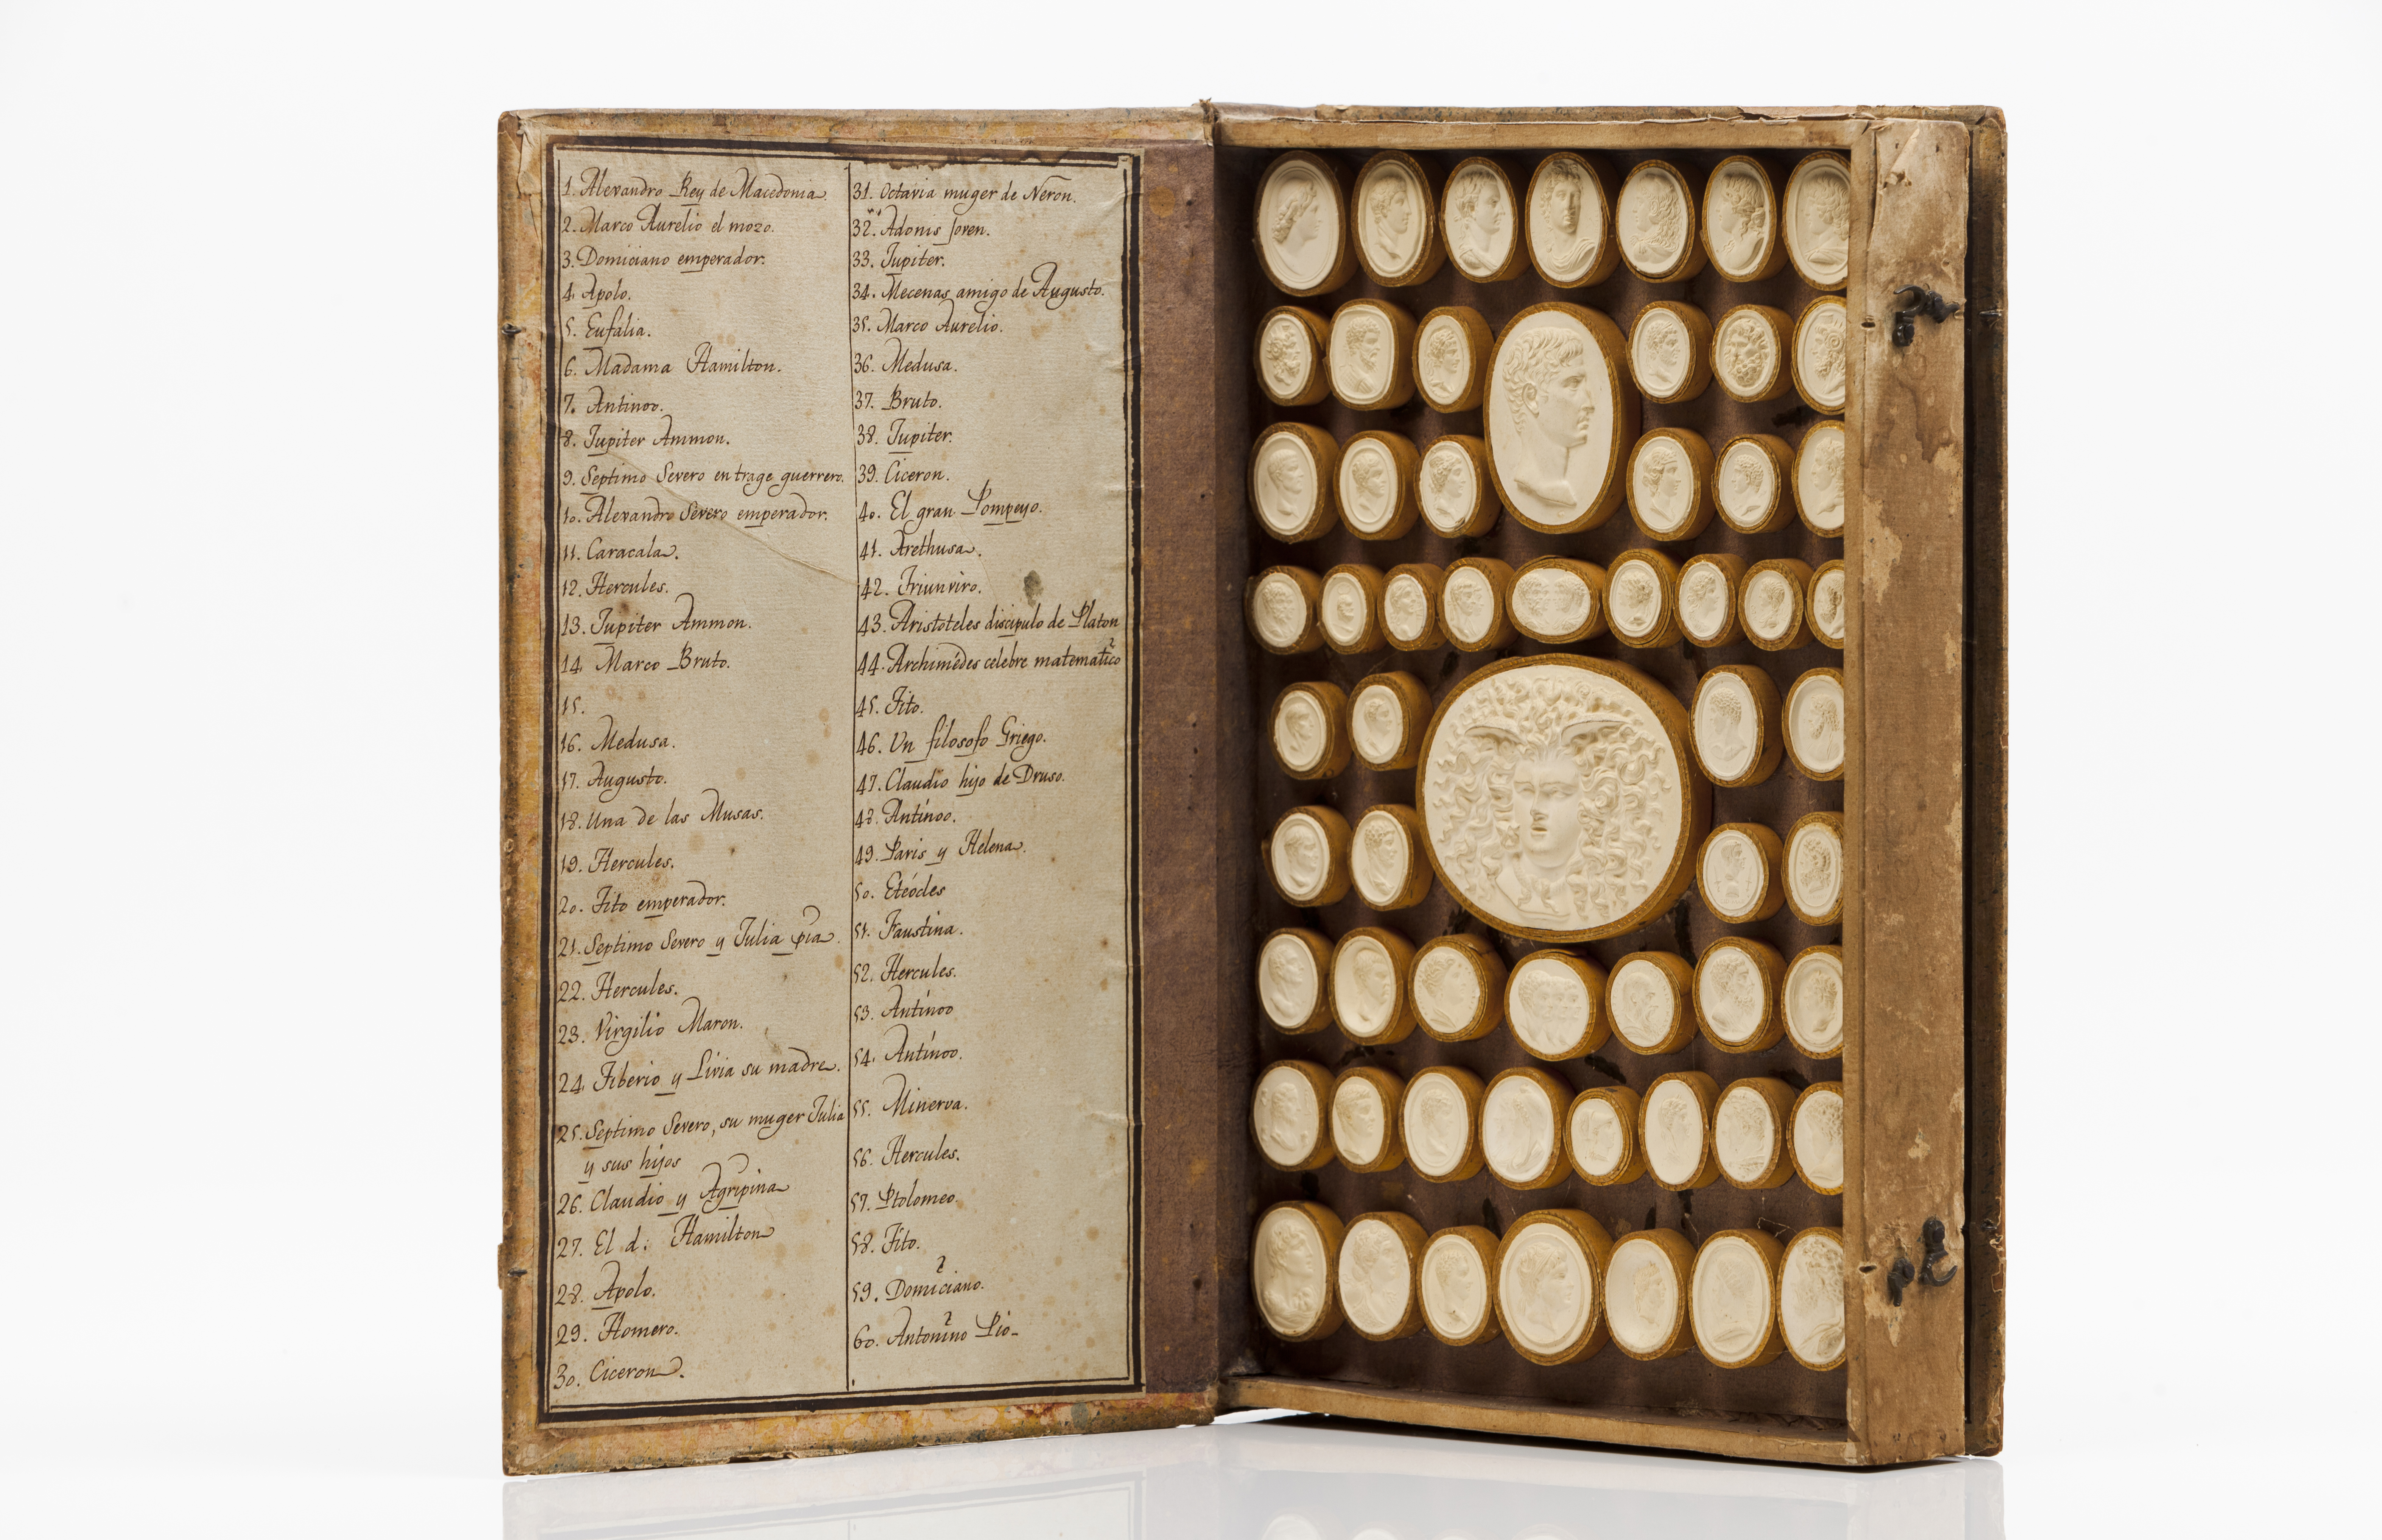 1. Alexandro Rey de Macedonia
2. Marco Aurelio el mozo.
3. Domiciano emperador.
4. Apolo.
5. Eufalia.
6. Madama Hamilton.
7. Antinoo.
8. Jupiter Ammon.
9. Septimo Severo en trage guerrero.
10. Alexandro Severo emperador.
11. Caracala.
12. Hercules.
13. Jupiter Ammon.
14. Marco Bruto.
15.
16. Medusa.
17. Augusto.
18. Una de las Musas.
19. Hercules.
20. Tito emperador.
21. Septimo Severo y Julia pia.
22. Hercules.
23. Virgilio Maron.
24. Tiberio y Livia su madre.
25. Septimo Severo, su muger Julia
y sus hijos
26. Claudio y Agripina
27. El d: Hamilton
28. Apolo.
29. Homero.
30. Ciceron.
31. Octavia muger de Neron.
32. Adonis Joven.
33. Jupiter.
34. Mecenas amigo de Augusto.
35. Marco Aurelio.
36. Medusa.
37. Bruto.
38. Jupiter.
39. Ciceron.
40. El gran Pompeyo.
41. Arethusa.
42. Triunviro.
43. Aristoteles discipulo de Platon
44. Archimédes celebre matematico
45. Tito.
46. Un filosofo Griego.
47. Claudio hijo de Druso.
48. Antínoo.
49. Paris y Helena.
50. Etéocles
51. Faustina.
52. Hercules.
53. Antínoo
54. Antínoo.
55. Minerva.
56. Hercules.
57. Ptolomeo
58. Tito.
59. Domiciano.
60. Antonino Pio